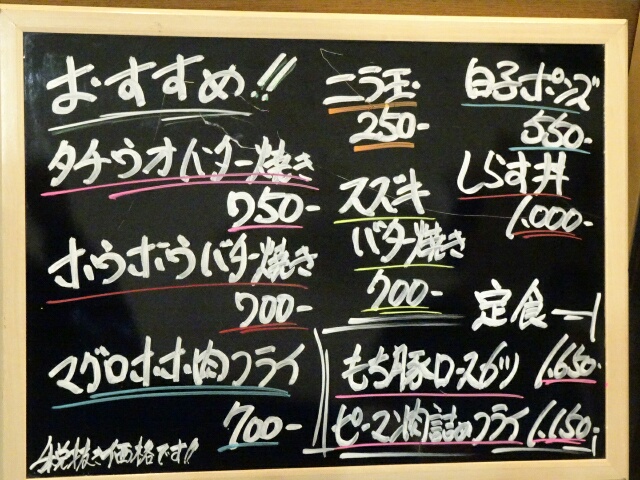 おすすめ!!
タチウオバター焼き
750-
ホウボウバター焼き
700-
マグロホホ肉フライ
700-
税抜き価格です!!
ニラ玉
250-
スズキ
バター焼き
700-
白子ポンズ
550-
しらす丼
1,000-
定食
もち豚ロースカツ 1,650-
ピーマン肉詰めフライ 1,150-